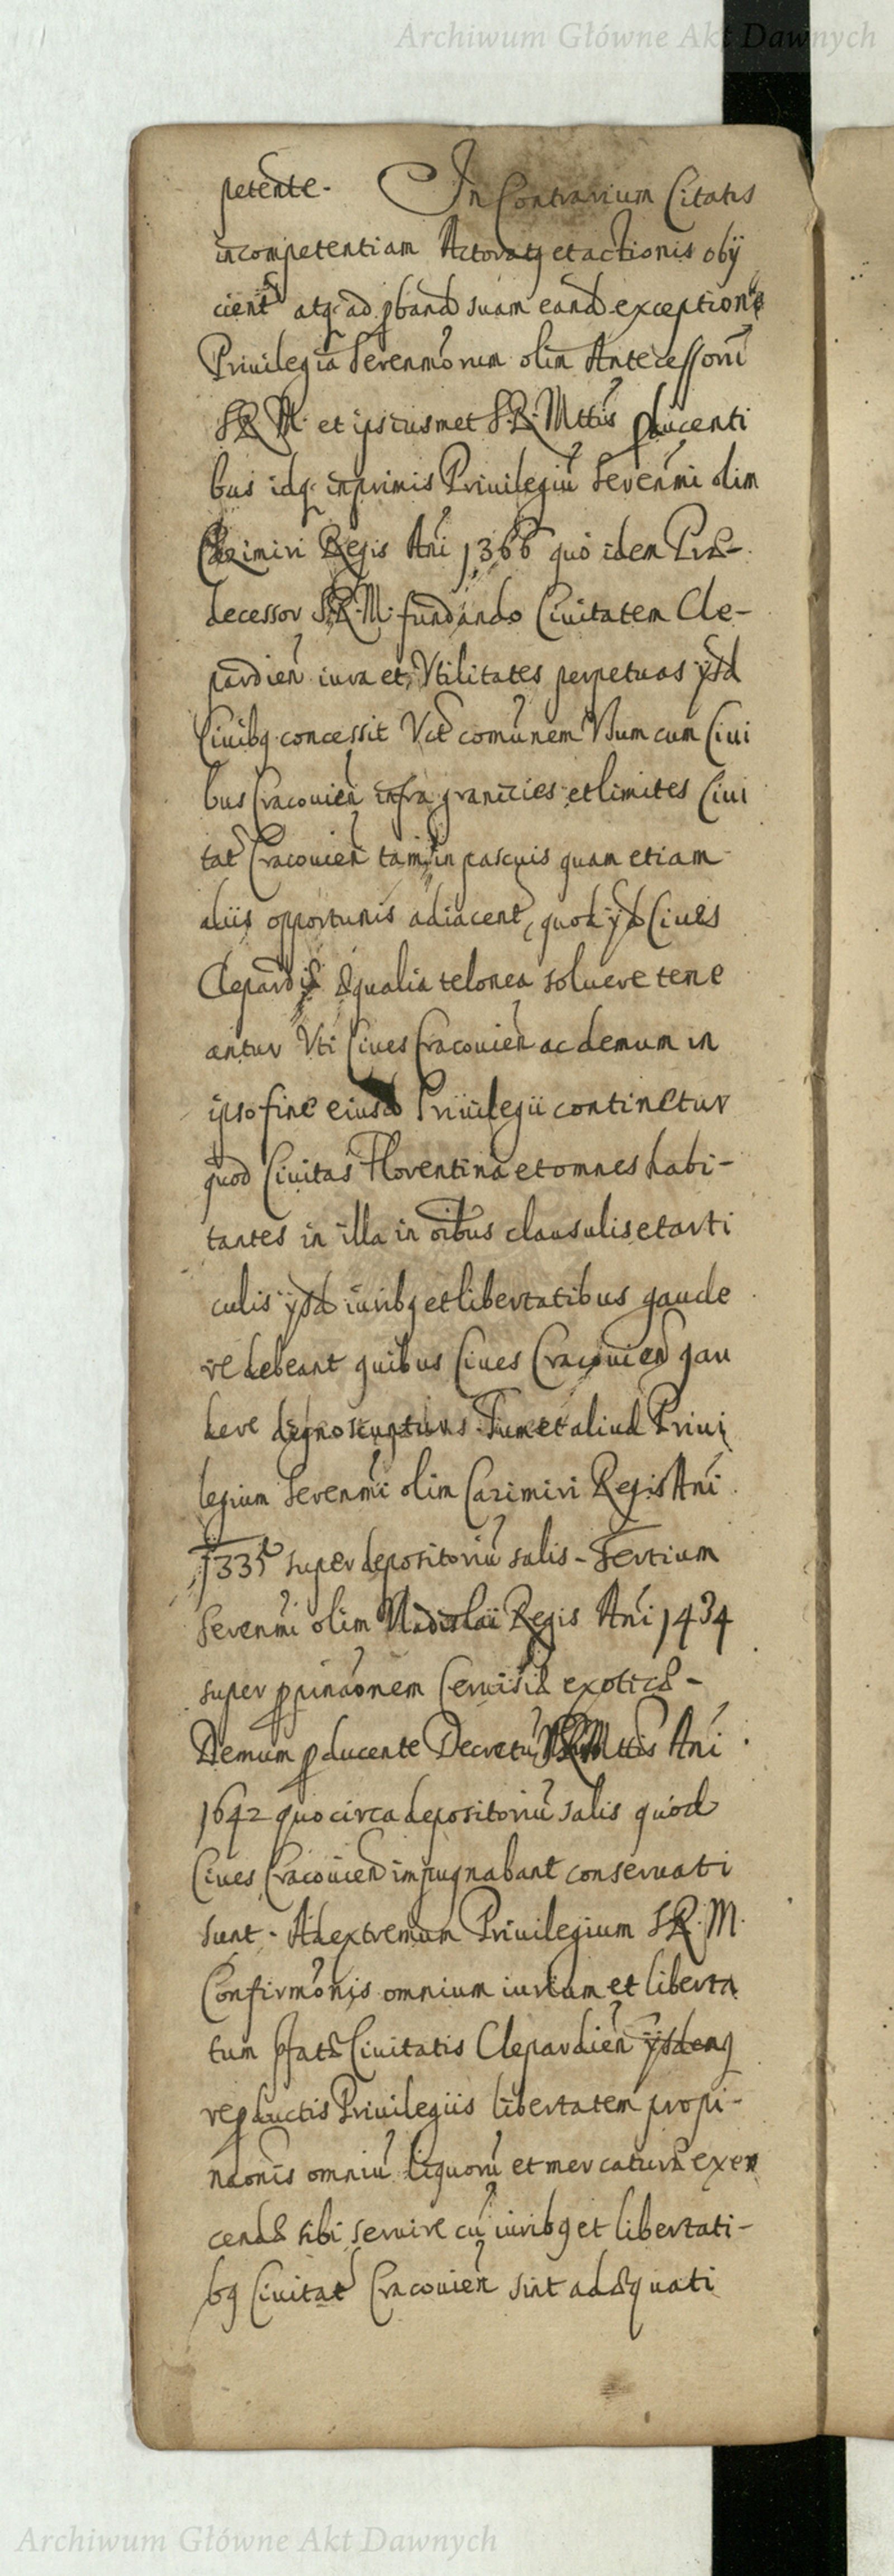 Archiwum Główne Akt Dawnych
petente. In Contrarium Citatis
incompetentiam Actoratq et actionis obij
cient atq ad pband suam eand exceptione
Priuilegia Serenmorum olim Antecessoru
S.R.M. et ipsiusmet S.R. Mttis pducenti
bus idq inprimis Priuilegiu Serenmi olim
Cazimiri Regis Ani 1366 quo idem Præ-
decessor S.R.M. fundando Ciuitatem Cle-
pardien iura et Vtilitates perpetuas ysd
Ciuibq concessit Vct comunem Vsum cum Ciui
bus Cracouien infra granicies et limites Ciui
tat Cracouien tam in pascuis quam etiam
aliis opportunis adiacent, quod yd Ciues
Clepardiæ æqualia telonea soluere tene
antur Vti Ciues Cracouien ac demum in
ipso fine eiusd Priuilegii continetur
quod Ciuitas Florentina et omnes habi-
tantes in illa in oibus clausulis et arti
culis ysd iuribq et libertatibus gaude
re debeant quibus Ciues Cracouien gau
dere dignoscuntur. Tum et aliud Priui
legium Serenmi olim Cazimiri Regis Ani
super depositoriu salis - Tertium
Serenmi olim Vladislai Regis Ani 1434
super ppinaonem Ceruisiæ exoticæ -
Demum pducente Decretu Mttis Ani
1642 quo circa depositoriu salis quod
Ciues Cracouien impugnabant conseruati
sunt. Ad extremum Priuilegium S.R.M.
Confirmonis omnium iurium et liberta
tum pfatæ Ciuitatis Clepardien ysdenq
repductis Priuilegiis libertatem propi-
naonis omniu liquoru et mercaturæ exer
cendæ sibi seruire cu iuribq et libertati-
bq Ciuitat Cracouien sint adæquati
Archiwum Główne Akt Dawnych